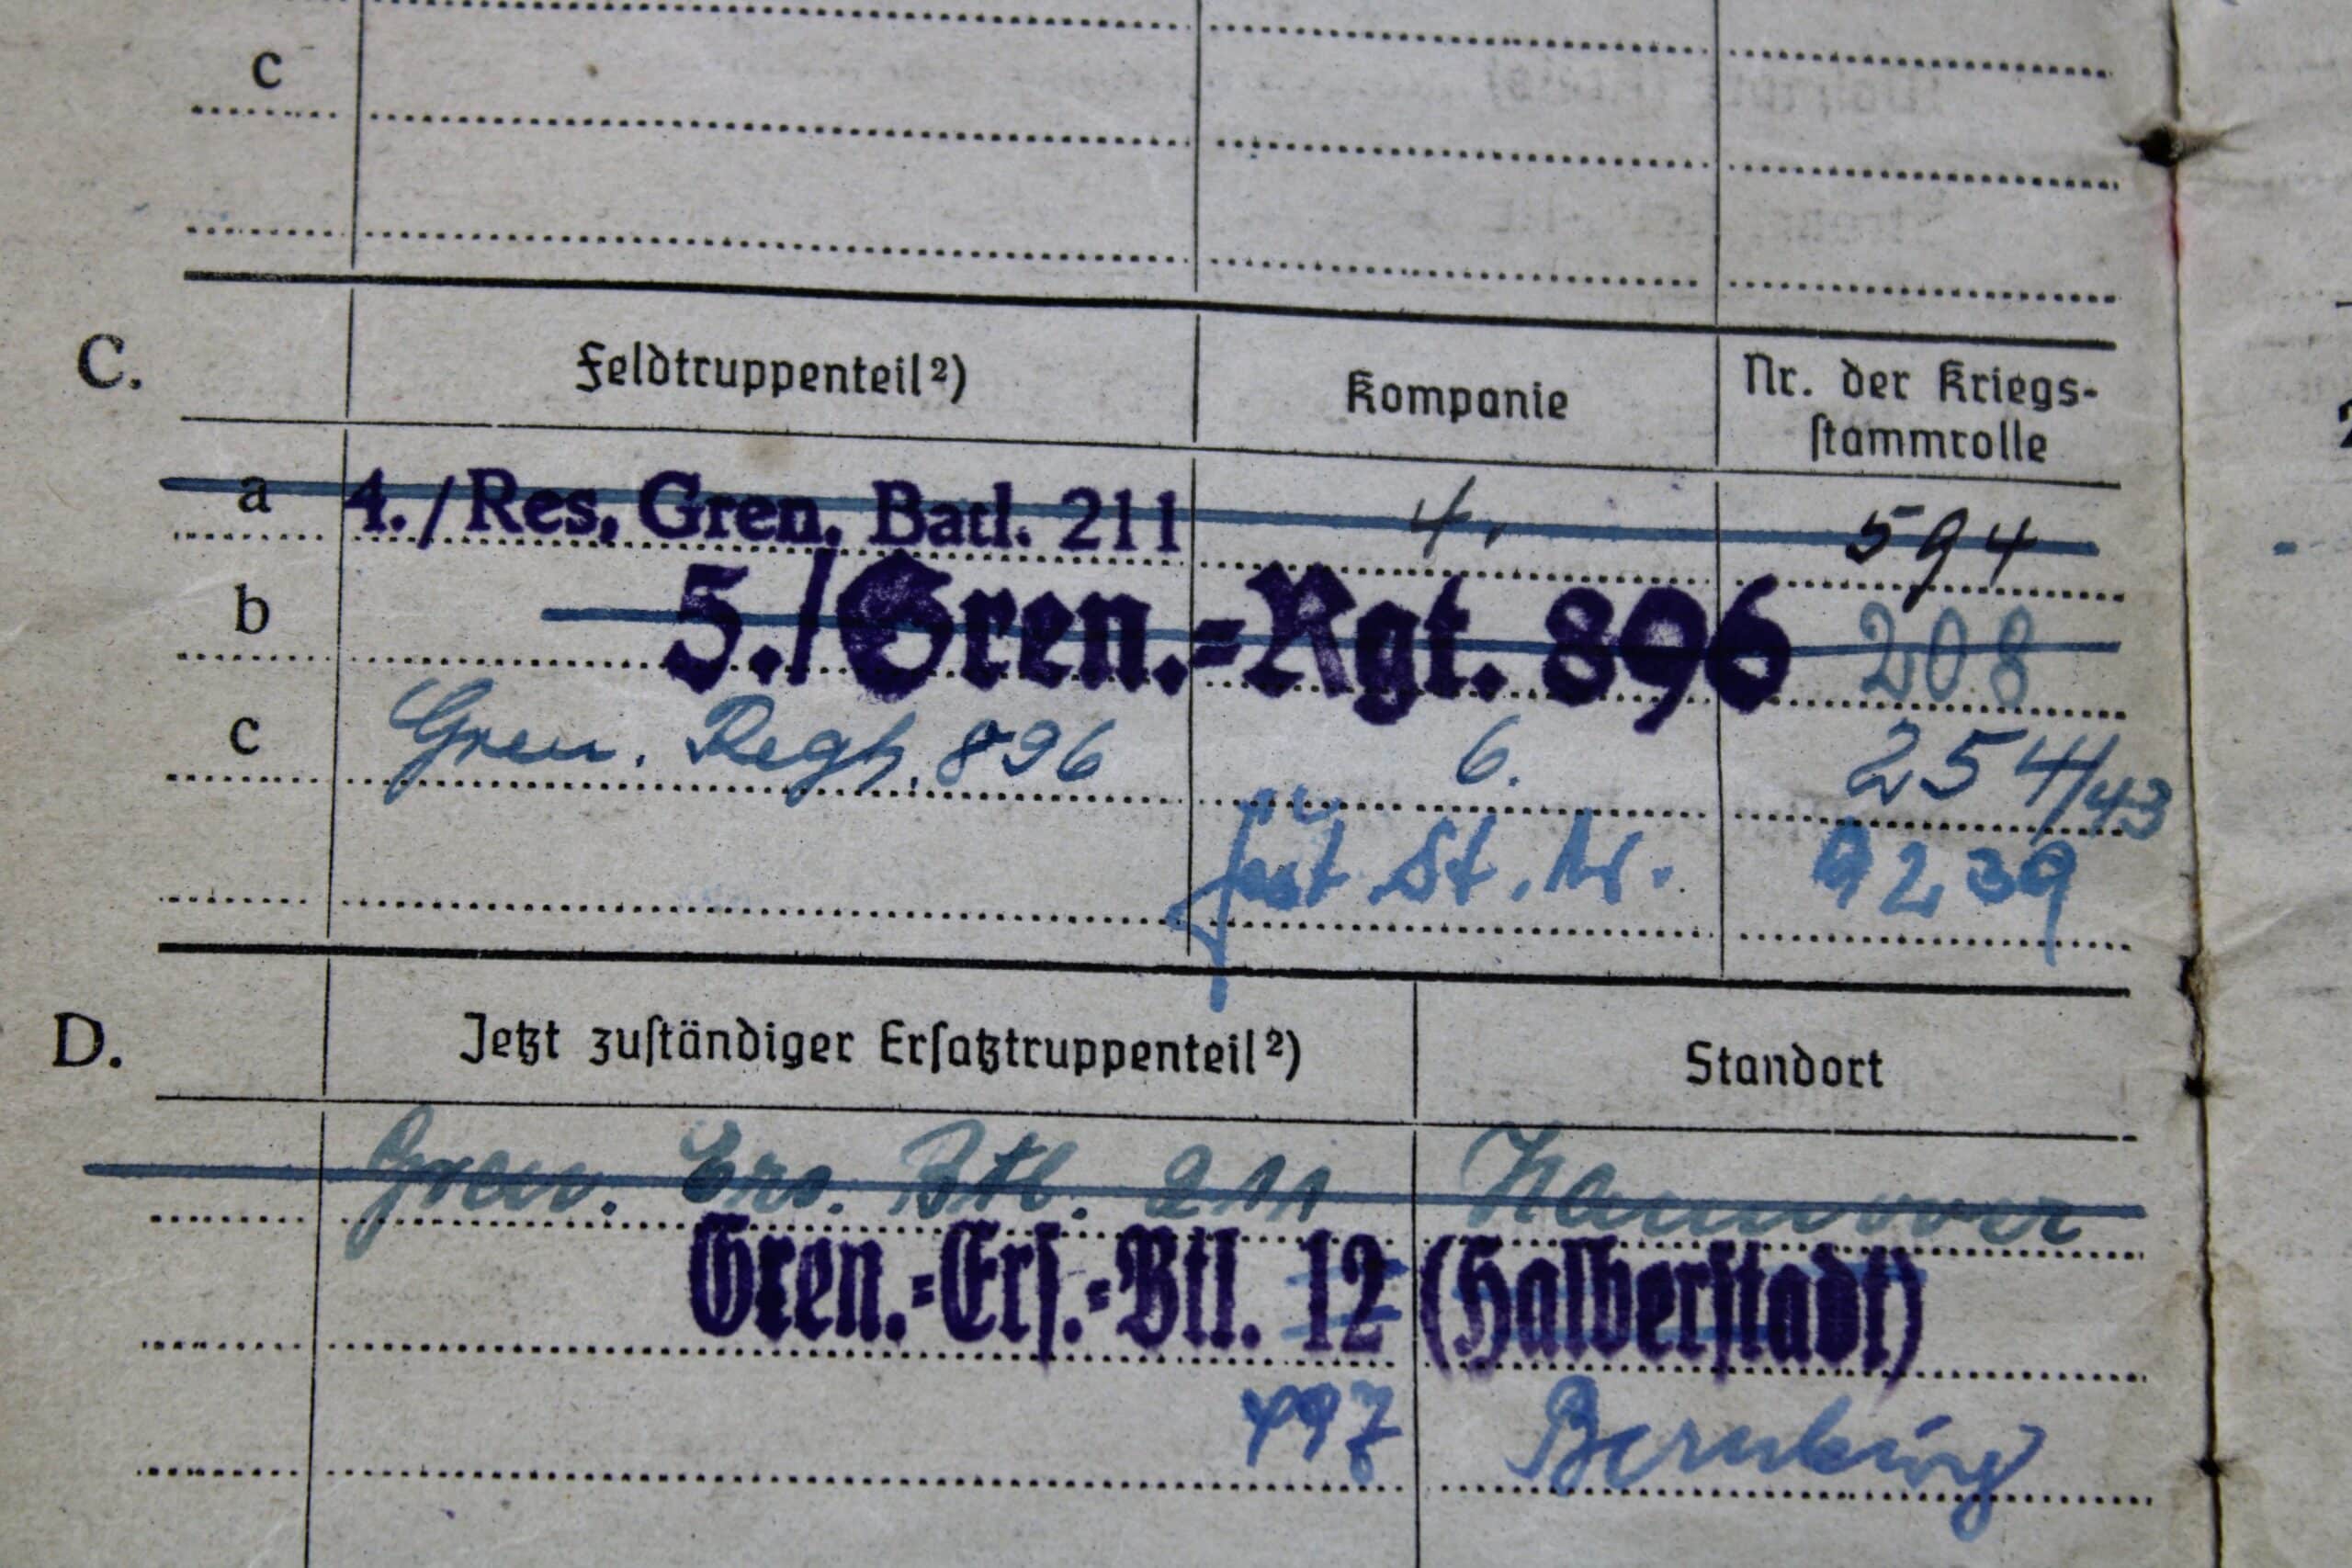 c
C. Feldtruppenteil ²) Kompanie Nr. der Kriegs-
stammrolle
a 4./Res. Gren. Batl. 211 4. 594
b 5./Gren.-Rgt. 896 208
c Gren. Regt. 896 6. 254/43
St. Nr. 9239
D. Jetzt zuständiger Ersatztruppenteil ²) Standort
Gren. Ers. Btl. 211 Hannover
Gren.-Ers.-Btl. 12 (Halberstadt)
497 Bernburg